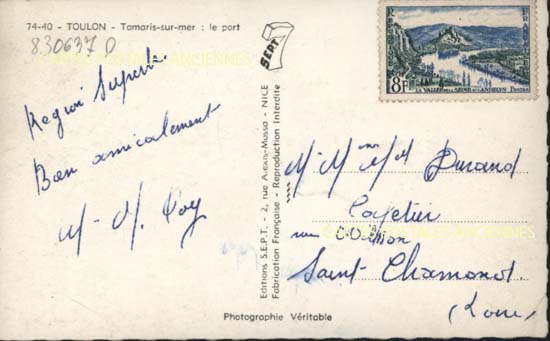 74-40 - TOULON - Tamaris-sur-mer : le port
830637 D
CARTES POSTALES ANCIENNES
Region Superbe
Bien amicalement
M. M. Roy
SEPT
Editions S.E.P.T. - 2, rue Alexis-Mossa - NICE
Fabrication Française - Reproduction Interdite
REPUBLIQUE FRANÇAISE
8F
LA VALLÉE DE LA SEINE AUX ANDELYS POSTES
M. Mme Durand
Cafetier
rue
CARTES POSTALES ANCIENNES
Saint-Chamond.
(Loire)
Photographie Véritable